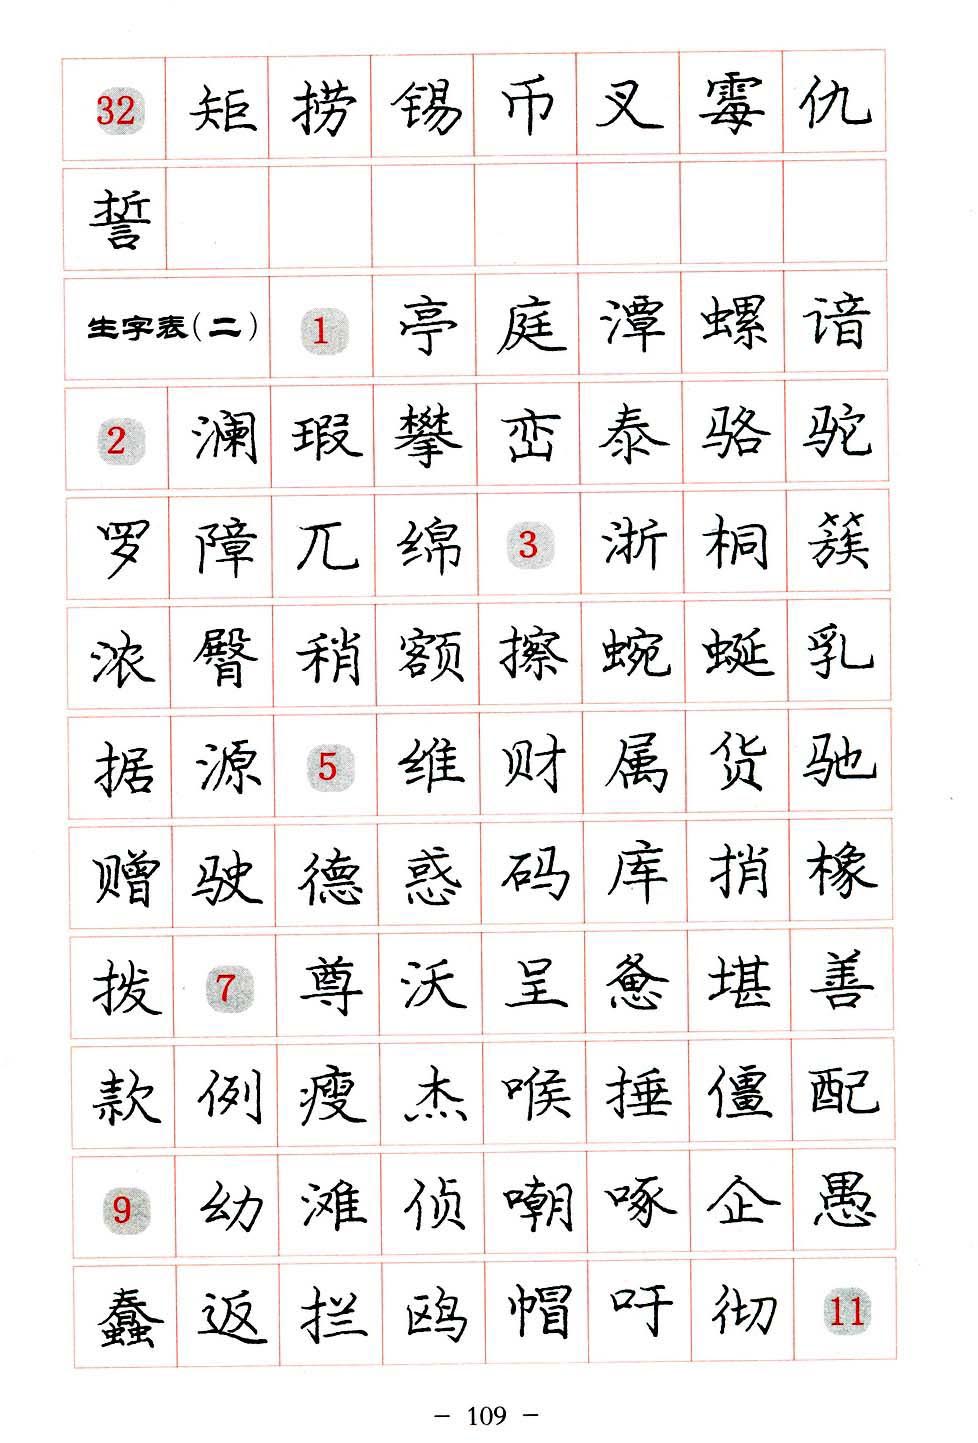 32 矩 捞 锡 币 叉 霉 仇
誓
生字表(二) 1 亭 庭 潭 螺 谙
2 澜 瑕 攀 峦 泰 骆 驼
罗 障 兀 绵 3 浙 桐 簇
浓 臀 稍 额 擦 蜿 蜒 乳
据 源 5 维 财 属 货 驰
赠 驶 德 惑 码 库 捎 橡
拨 7 尊 沃 呈 惫 堪 善
款 例 瘦 杰 喉 捶 僵 配
9 幼 滩 侦 嘲 啄 企 愚
蠢 返 拦 鸥 帽 吁 彻 11
- 109 -